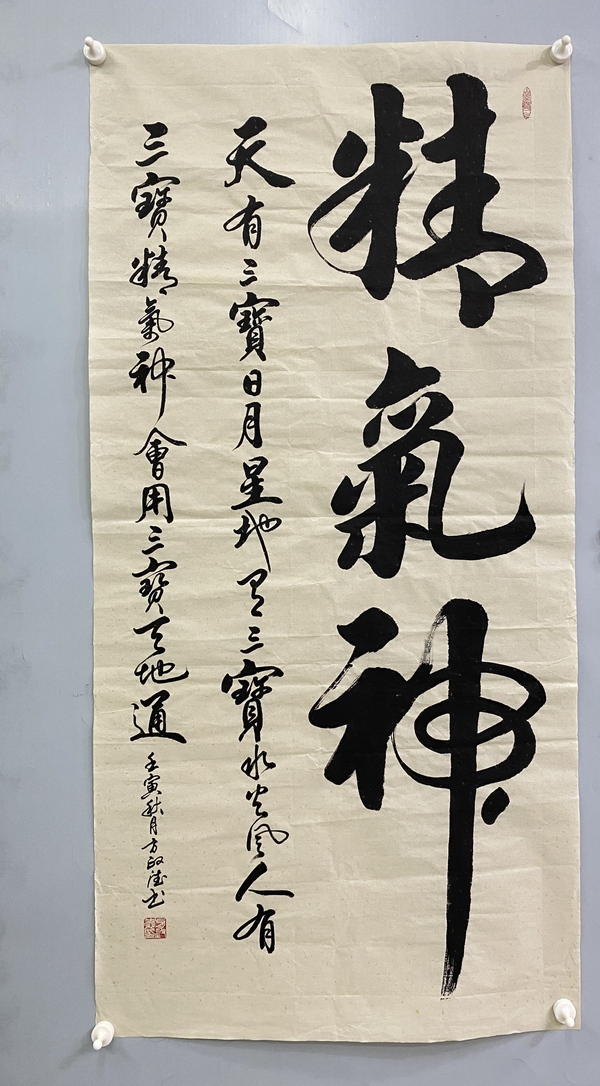 精氣神
天有三寶日月星地有三寶水火風人有
三寶精氣神會用三寶天地通
壬寅秋月方政陸书